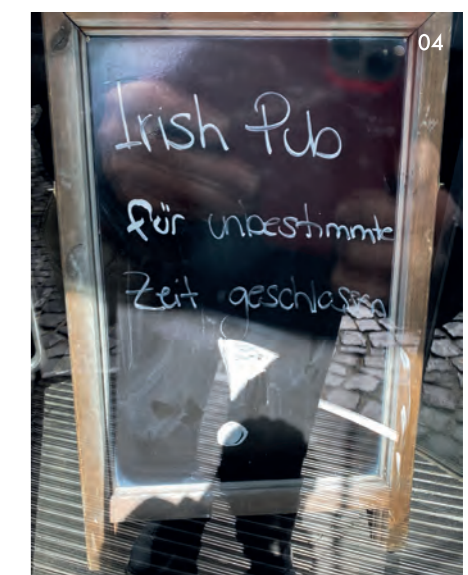 04
Irish Pub
für unbestimmte
Zeit geschlossen
!